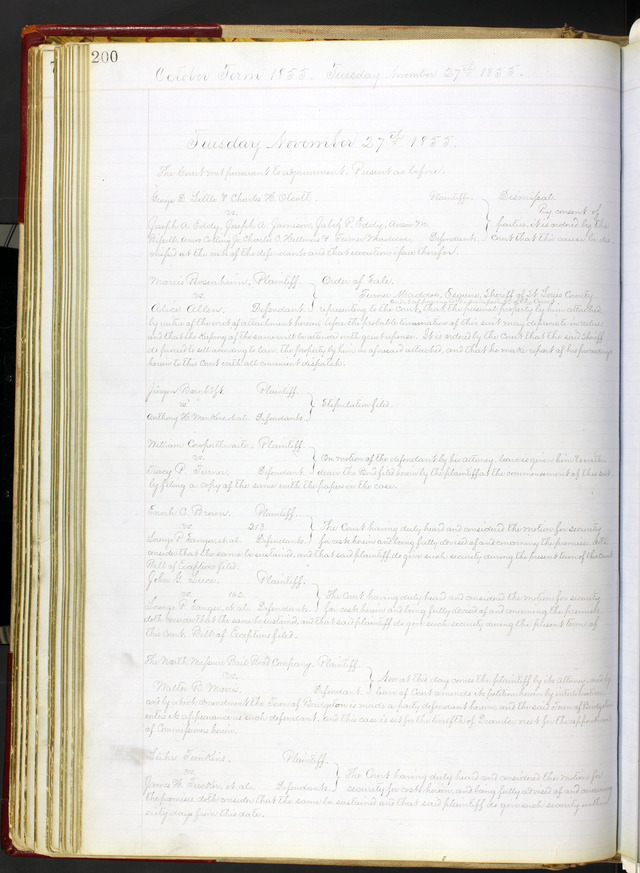 200
October Term 1855. Tuesday November 27th 1855.
Tuesday November 27th 1855.
The Court met pursuant to adjournment. Present as before.
George B. Little & Charles H. Olcott. Plaintiffs. Dismissal.
vs. By consent of
Joseph A. Eddy, Joseph A. Jamison, Jabez P. Eddy, parties, it is ordered by the
Defendants. Court that this cause be dis
missed at the cost of the defendants and that execution issue therefor.
Plaintiff. Order of Sale.
vs. Esquire, Sheriff of St. Louis County
Alice Allen. Defendant. representing to the Court, that the personal property by him attached
by virtue of the writ of attachment herein, before the probable termination of this suit may deteriorate in value,
and that the keeping of the same will be attended with great expense. It is ordered by the Court that the said Sheriff
do proceed to sell according to law, the property by him as aforesaid attached, and that he make report of his proceedings
herein to this Court with all convenient dispatch.
Plaintiff.
vs. Stipulation filed.
Anthony et al. Defendants.
William Cowperthwaite. Plaintiff.
vs. On motion of the defendant by his attorney, leave is given him to with
P. Turner. Defendant. draw the filed herein by the plaintiff at the commencement of this suit
by filing a copy of the same with the papers in the case.
C. Brown. Plaintiff.
vs. 213 The Court having duly heard and considered the motion for security
et al. Defendants. for costs herein and being fully advised of and concerning the premises, doth
consider that the same be sustained, and that said plaintiff do give such security during the present term of this Court.
Bill of Exceptions filed.
John Plaintiff.
vs. The Court having duly heard and considered the motion for security
et al. Defendants. for costs herein and being fully advised of and concerning the premises
doth consider that the same be sustained, and that said plaintiff do give such security during the present term of
this Court. Bill of Exceptions filed.
The North Missouri Rail Road Company. Plaintiff.
vs. Now at this day comes the plaintiff by its attorney, and by
Walter B. Morris. Defendant. leave of Court amends its petition herein by interlineation,
and by which amendment the Town of Bridgeton is made a party defendant herein, and the said Town of Bridgeton
enters its appearance as such defendant, and this case is set for the twelfth of December next for the appointment
of Commissioners herein.
Plaintiff.
vs. The Court having duly heard and considered the motion for
James W. Tucker, et al. Defendants. security for costs herein, and being fully advised of and concerning
the premises doth consider that the same be sustained and that said plaintiff do give such security within
sixty days from this date.